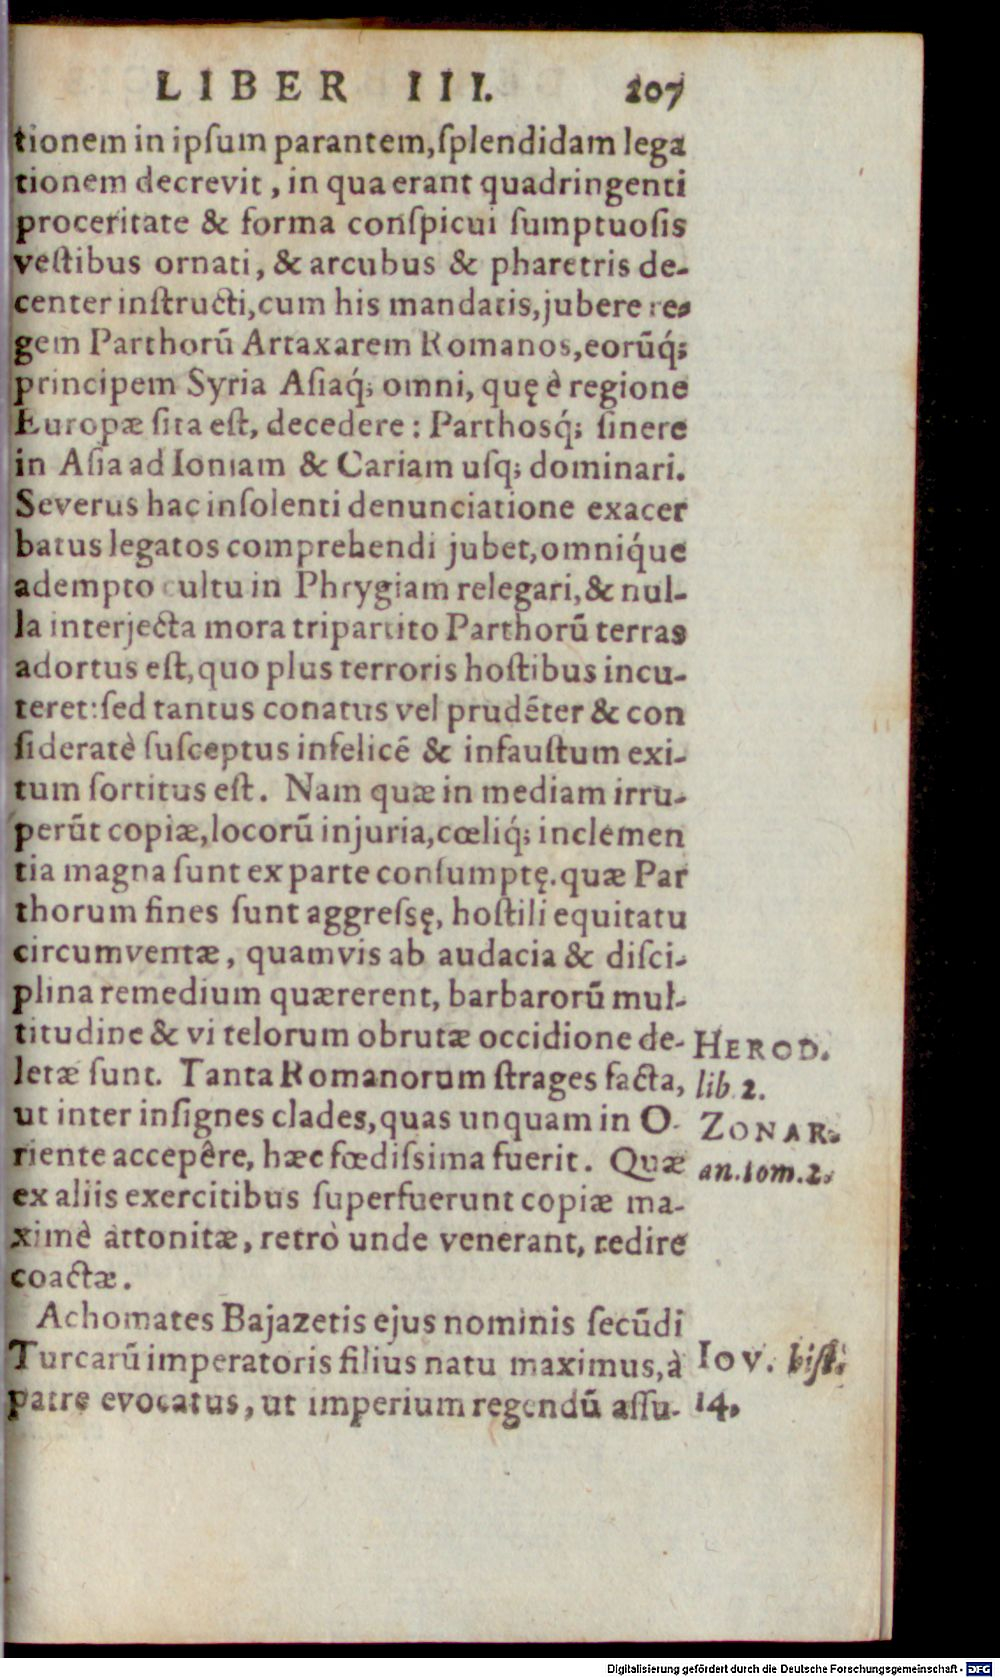 LIBER III. 207
tionem in ipſum parantem, ſplendidam lega
tionem decrevit, in qua erant quadringenti
proceritate & forma conſpicui ſumptuoſis
veſtibus ornati, & arcubus & pharetris de-
center inſtructi, cum his mandatis, jubere re-
gem Parthorū Artaxarem Romanos, eorūq́;
principem Syria Aſiaq́; omni, quę è regione
Europæ ſita eſt, decedere: Parthosq́; ſinere
in Aſia ad Ioniam & Cariam uſq; dominari.
Severus hac inſolenti denunciatione exacer
batus legatos comprehendi jubet, omniq́ue
adempto cultu in Phrygiam relegari, & nul-
la interjecta mora tripartito Parthorū terras
adortus eſt, quo plus terroris hoſtibus incu-
teret: ſed tantus conatus vel prudēter & con
ſideratè ſuſceptus infelicē & infauſtum exi-
tum ſortitus eſt. Nam quæ in mediam irru-
perūt copiæ, locorū injuria, cœliq́; inclemen
tia magna ſunt ex parte conſumptę. quæ Par
thorum fines ſunt aggreſsę, hoſtili equitatu
circumventæ, quamvis ab audacia & diſci-
plina remedium quærerent, barbarorū mul-
titudine & vi telorum obrutæ occidione de-
letæ ſunt. Tanta Romanorum ſtrages facta,
ut inter inſignes clades, quas unquam in O-
riente accepêre, hæc fœdiſſima fuerit. Quæ
ex aliis exercitibus ſuperfuerunt copiæ ma-
ximè attonitæ, retrò unde venerant, redire
coactæ.
HEROD.
lib. 2.
ZONAR.
an. tom. 2.
Achomates Bajazetis ejus nominis ſecūdi
Turcarū imperatoris filius natu maximus, à
patre evocatus, ut imperium regendū aſſu-
Iov. hiſt.
14.
Digitalisierung gefördert durch die Deutsche Forschungsgemeinschaft - DFG